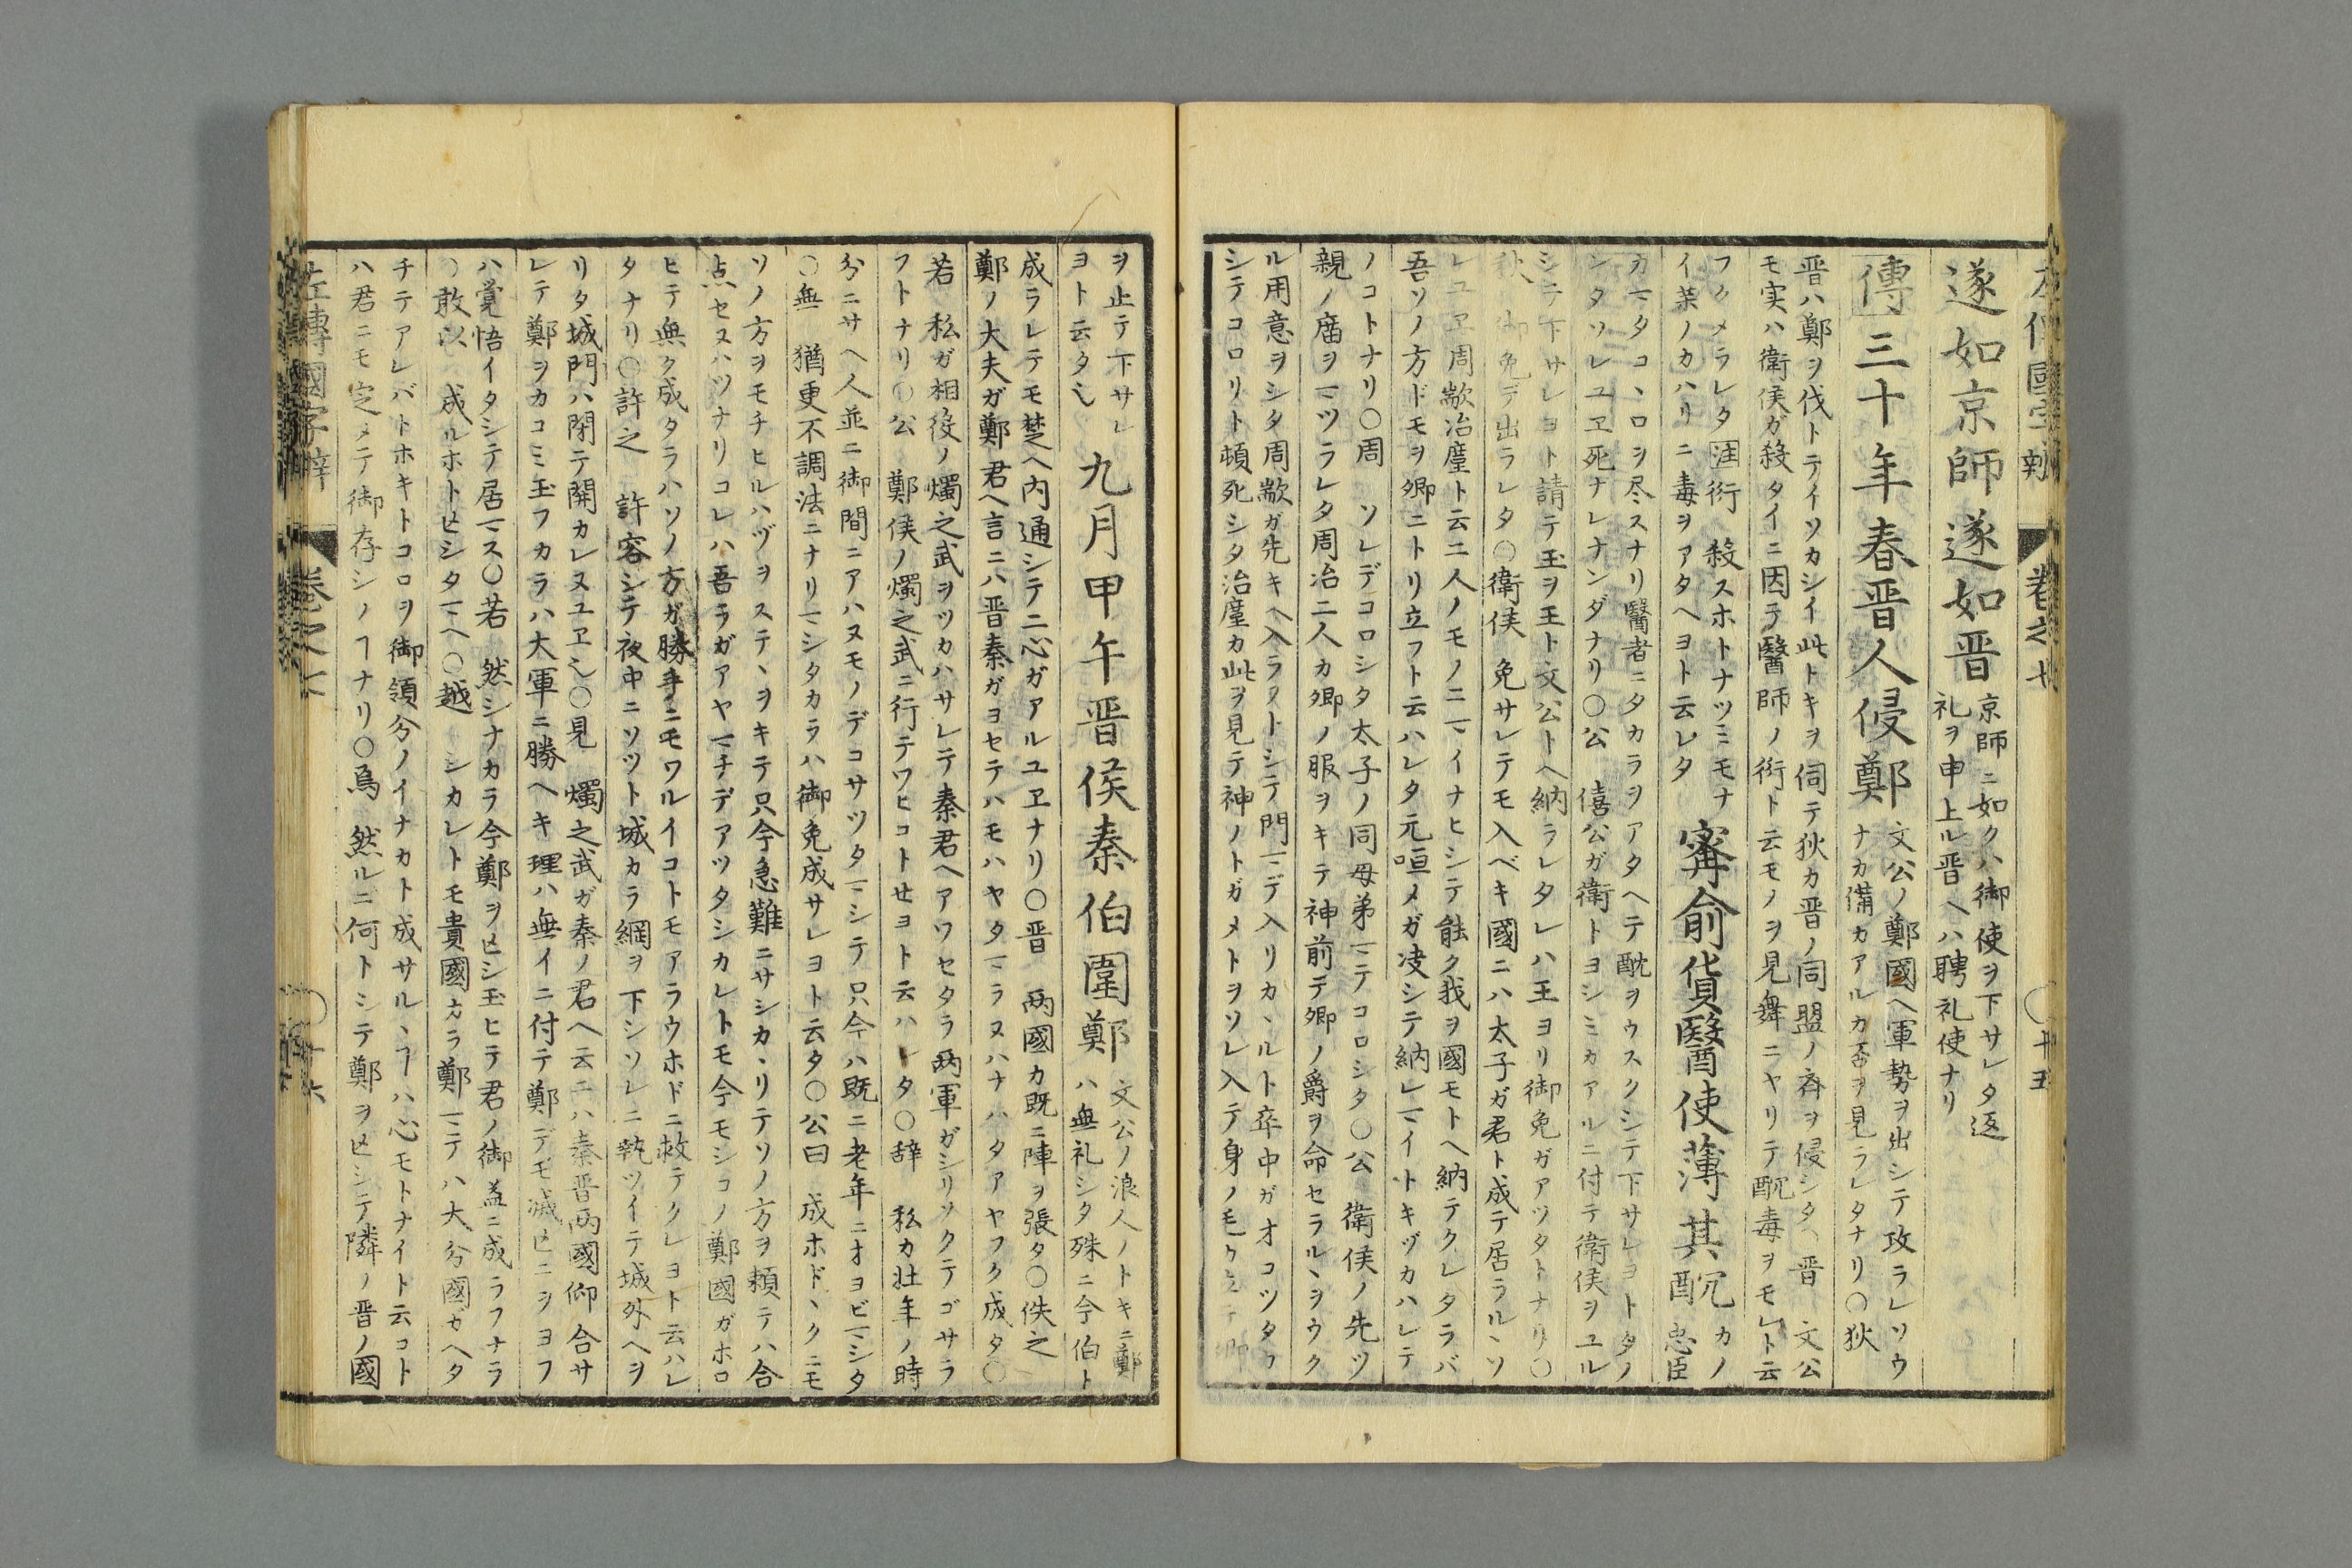 左傳國字辯 巻之七 〇十五
遂如京師遂如晋
京師ニ如クハ御使ヲ下サレタ返
礼ヲ申上ル晋ヘハ聘礼使ナリ
傳三十年春晋人侵鄭
文公ノ鄭國ヘ軍勢ヲ出シテ攻ラレソウ
ナカ備カアルカ否ヲ見ラレタナリ〇狄
晋ハ鄭ヲ伐トテイソカシイ此トキヲ伺テ狄カ晋ノ同盟ノ斉ヲ侵シタ〇晋 文公
モ実ハ衛侯ガ殺タイニ因ラ醫師ノ衍ト云モノヲ見舞ニヤリテ酖毒ヲモレト云
フクメラレタ注衍 殺スホトナツミモナ
イ菓ノカハリニ毒ヲアタヘヨト云レタ
甯俞貨醫使薄其酖
カノ
忠臣
カマタコヽロヲ尽スナリ醫者ニタカラヲアタヘテ酖ヲウスクシテ下サレヨトタノ
シタソレユヱ死ナレナンダナリ〇公 僖公ガ衛トヨシミカアルニ付テ衛侯ヲユル
シテ下サレヨト請テ玉ヲ王ト文公トヘ納ラレタレハ王ヨリ御免ガアツタトナリ〇
秋 御免デ出ラレタ〇衛侯 免サレテモ入ベキ國ニハ太子ガ君ト成テ居ラルヽソ
レユヱ周歂冶廑ト云二人ノモノニマイナヒシテ能ク我ヲ國モトヘ納テクレタラバ
吾ソノ方ドモヲ卿ニトリ立フト云ハレタ元咺メガ凌シテ納レマイトキヅカハレテ
ノコトナリ〇周 ソレデコロシタ太子ノ同母弟マテコロシタ〇公 衛侯ノ先ツ
親ノ廟ヲマツラレタ周冶二人カ卿ノ服ヲキテ神前デ卿ノ爵ヲ命セラルヽヲウク
ル用意ヲシタ周歂ガ先キヘ入ラヌトシテ門マデ入リカヽルト卒中ガオコツタカ
シテコロリト頓死シタ冶廑カ此ヲ見テ神ノトガメトヲソレ入テ身ノ毛
ヲ止テ下サレ
ヨト云タ也
九月甲午晋侯秦伯圍鄭
文公ノ浪人ノトキニ鄭
ハ無礼シタ殊ニ今伯ト
成ラレテモ楚ヘ内通シテ二心ガアルユヱナリ〇晋 両國カ既ニ陣ヲ張タ〇佚之
鄭ノ大夫ガ鄭君ヘ言ニハ晋秦ガヨセテハモハヤタマラヌハナハタアヤフク成タ〇
若 私ガ相役ノ燭之武ヲツカハサレテ秦君ヘアワセタラ両軍ガシリソクテゴサラ
フトナリ〇公 鄭侯ノ燭之武ニ行テワヒコトセヨト云ハレタ〇辞 私カ壮年ノ時
分ニサヘ人並ニ御間ニアハヌモノデコサツタマシテ只今ハ既ニ老年ニオヨビマシタ
〇無 猶更不調法ニナリマシタカラハ御免成サレヨト云タ〇公曰 成ホドヽクニモ
ソノ方ヲモチヒルハヅヲステヽヲキテ只今急難ニサシカヽリテソノ方ヲ頼テハ合
点セヌハツナリコレハ吾ラガアヤマチデアツタシカレトモ今モシコノ鄭國ガホロ
ヒテ無ク成タラハソノ方ガ勝手ニモワルイコトモアラウホドニ救テクレヨト云ハレ
タナリ〇許之 許容シテ夜中ニソツト城カラ綱ヲ下シソレニ執ツイテ城外ヘヲ
リタ城門ハ閉テ開カレヌユヱ也〇見 燭之武ガ秦ノ君ヘ云ニハ秦晋両國仰合サ
レテ鄭ヲカコミ玉フカラハ大軍ニ勝ヘキ理ハ無イニ付テ鄭デモ滅ヒニヲヨフ
ハ覚悟イタシテ居マス〇若 然シナカラ今鄭ヲ亡シ玉ヒテ君ノ御益ニ成ラフナラ
〇敢以 成ルホト亡シタマヘ〇越 シカレトモ貴國カラ鄭マテハ大分國カヘタ
チテアレバトホキトコロヲ御領分ノイナカト成サルヽヿハ心モトナイト云コト
ハ君ニモ定メテ御存シノヿナリ〇焉 然ルニ何トシテ鄭ヲ亡シテ隣ノ晋ノ國
左傳國字辯 巻之七 〇十六